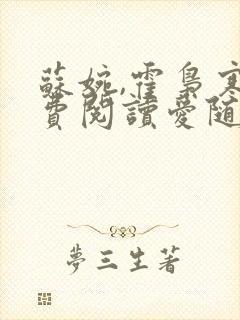 蘇婉,霍梟寒
費閱讀愛隨
夢三生著